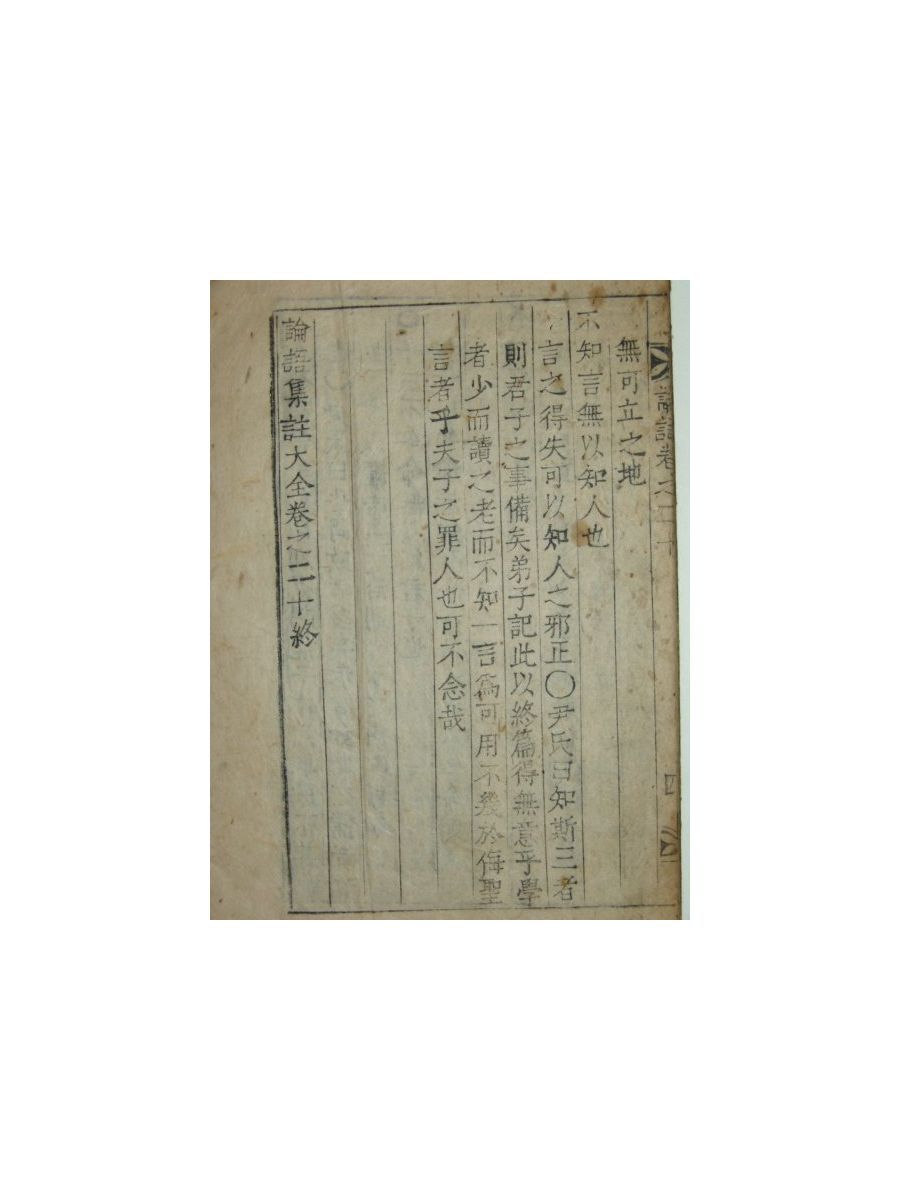 論語卷之二十
無可立之地
不知言無以知人也
言之得失可以知人之邪正〇尹氏曰知斯三者
則君子之事備矣弟子記此以終篇得無意乎學
者少而讀之老而不知一言爲可用不幾於侮聖
言者乎夫子之罪人也可不念哉
論語集註大全卷之二十終